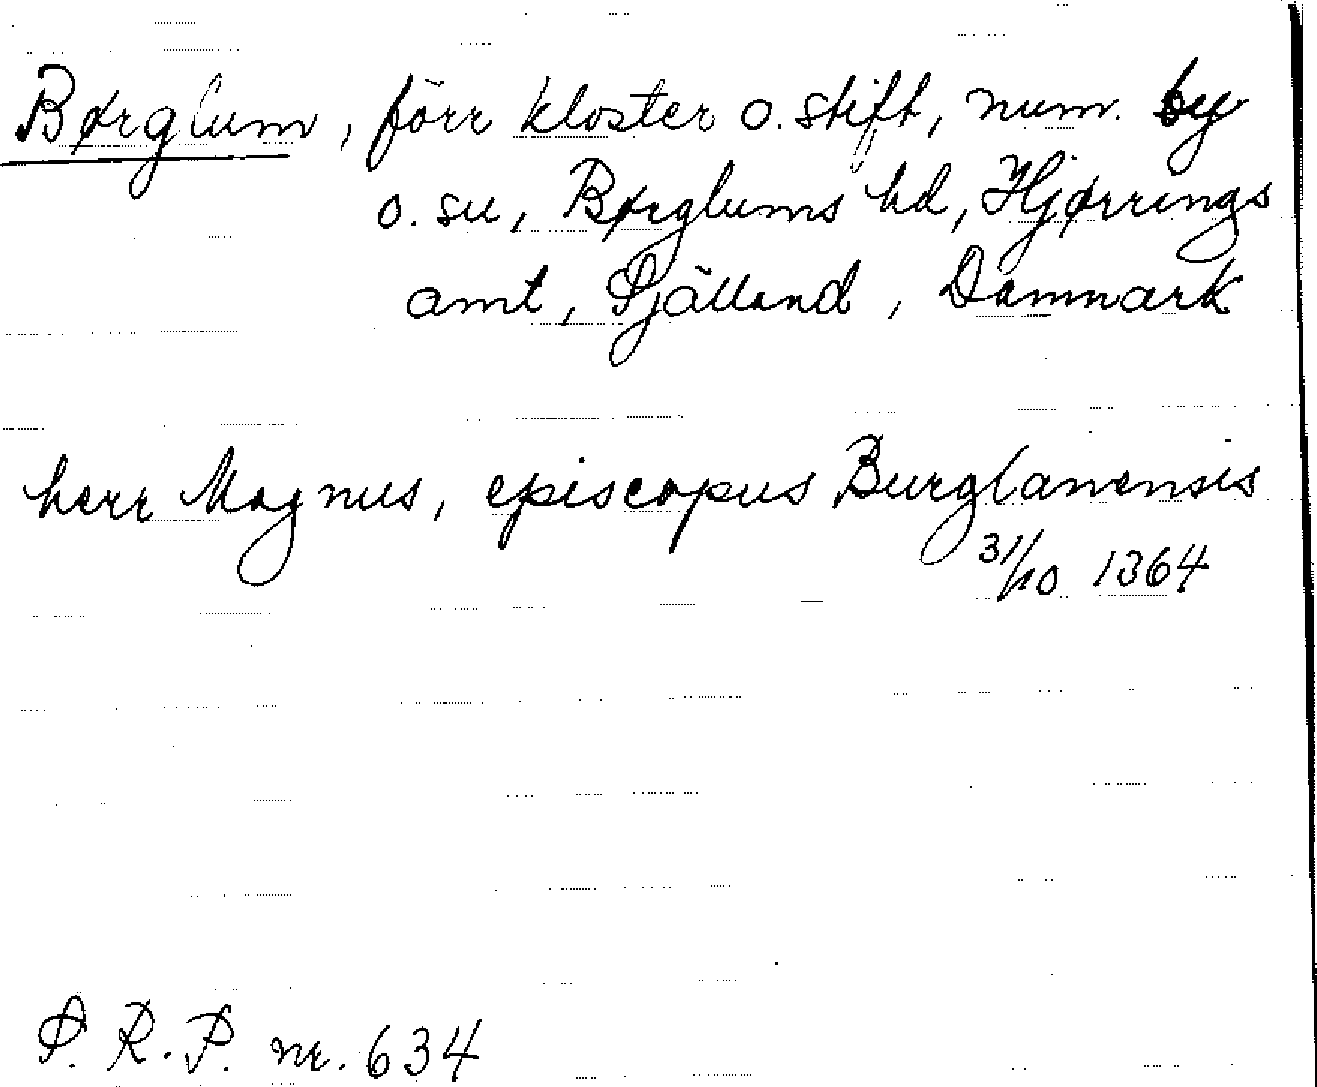 Børglum, förr kloster o. stift, num. by
o. sn, Børglums hd, Hjørrings
amt, Själland, Danmark
herr Magnus, episcopus Burglanensis
31/10 1364
S.R.P. nr. 634